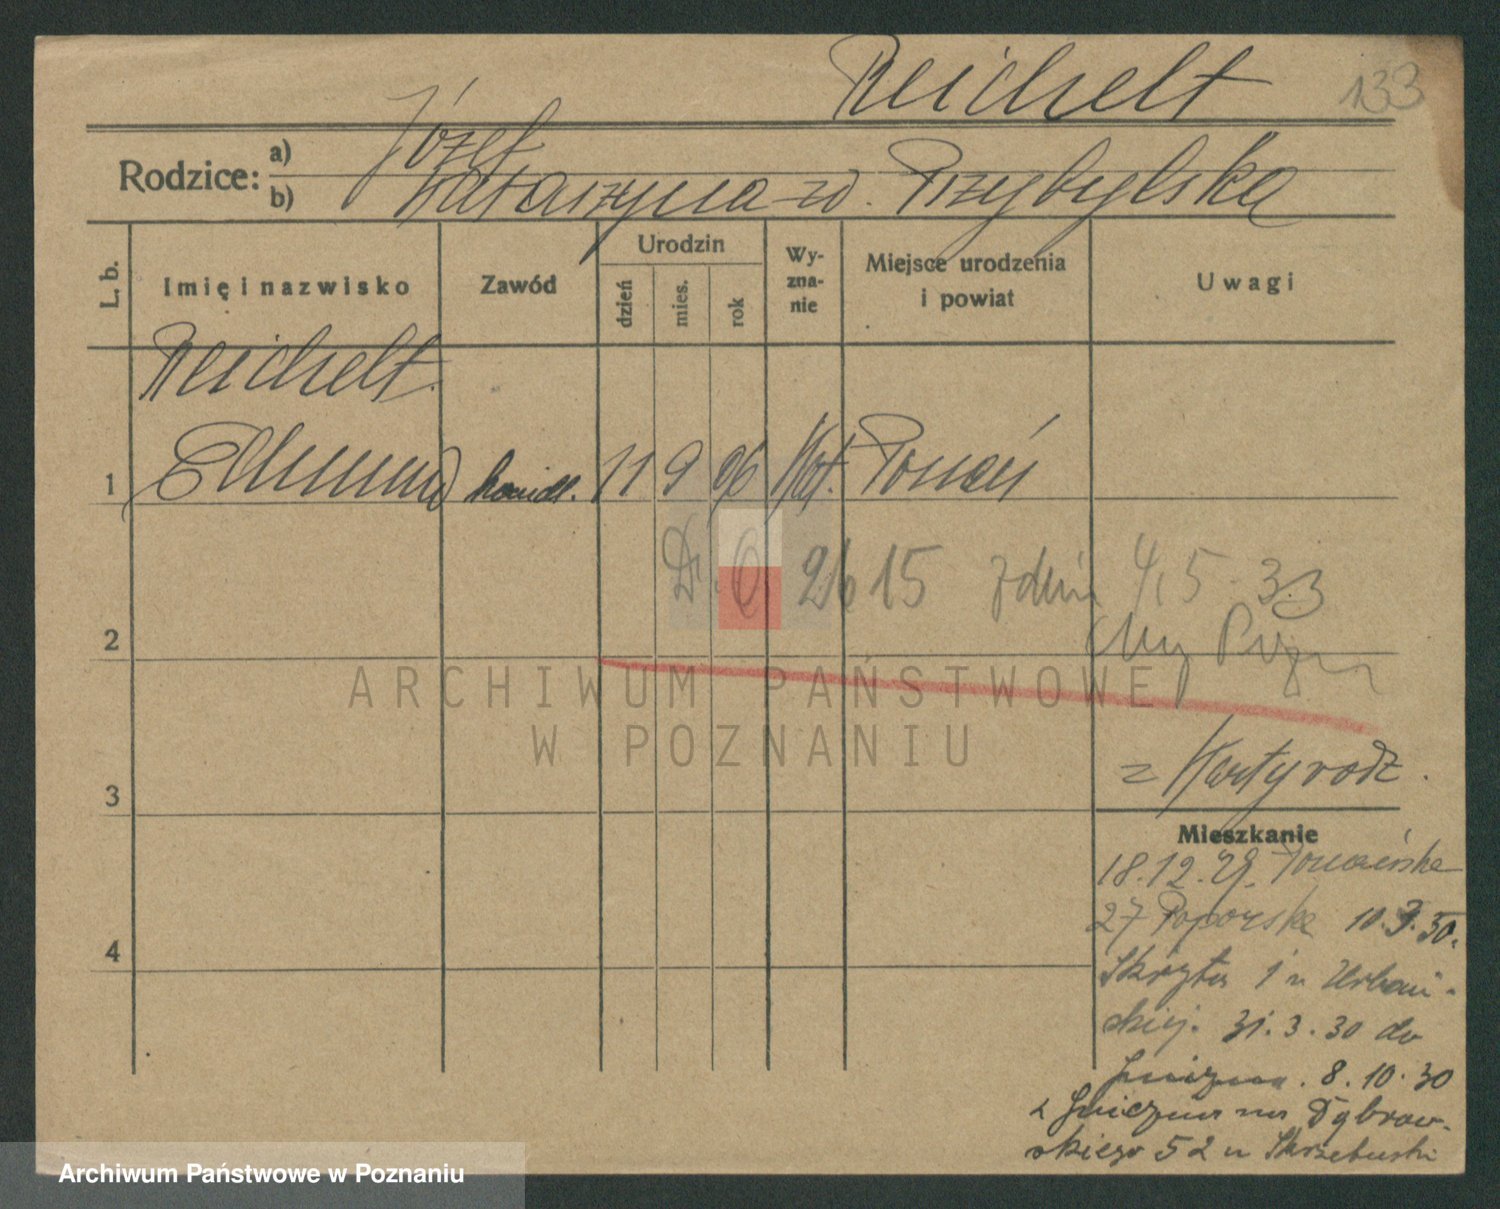 Reichelt 133
Rodzice: a) Józef
b) Katarzyna zd. Przybylska
L. b. Imię i nazwisko Zawód Urodzin dzień mies. rok Wyznanie Miejsce urodzenia i powiat Uwagi
Reichelt
1 Edmund handl. 11 9 96 Kat. Poznań
D. O 2615 z dnia 4.5.33
2
ARCHIWUM PAŃSTWOWE
W POZNANIU
z Karty rodz.
3
Mieszkanie
18.12.29. Poznańska
27 10.3.30.
4
Skryta 1 u Urbań-
skiej. 31.3.30 do
Gniezna. 8.10.30
z Gniezna na Dąbrow-
skiego 52 u
Archiwum Państwowe w Poznaniu